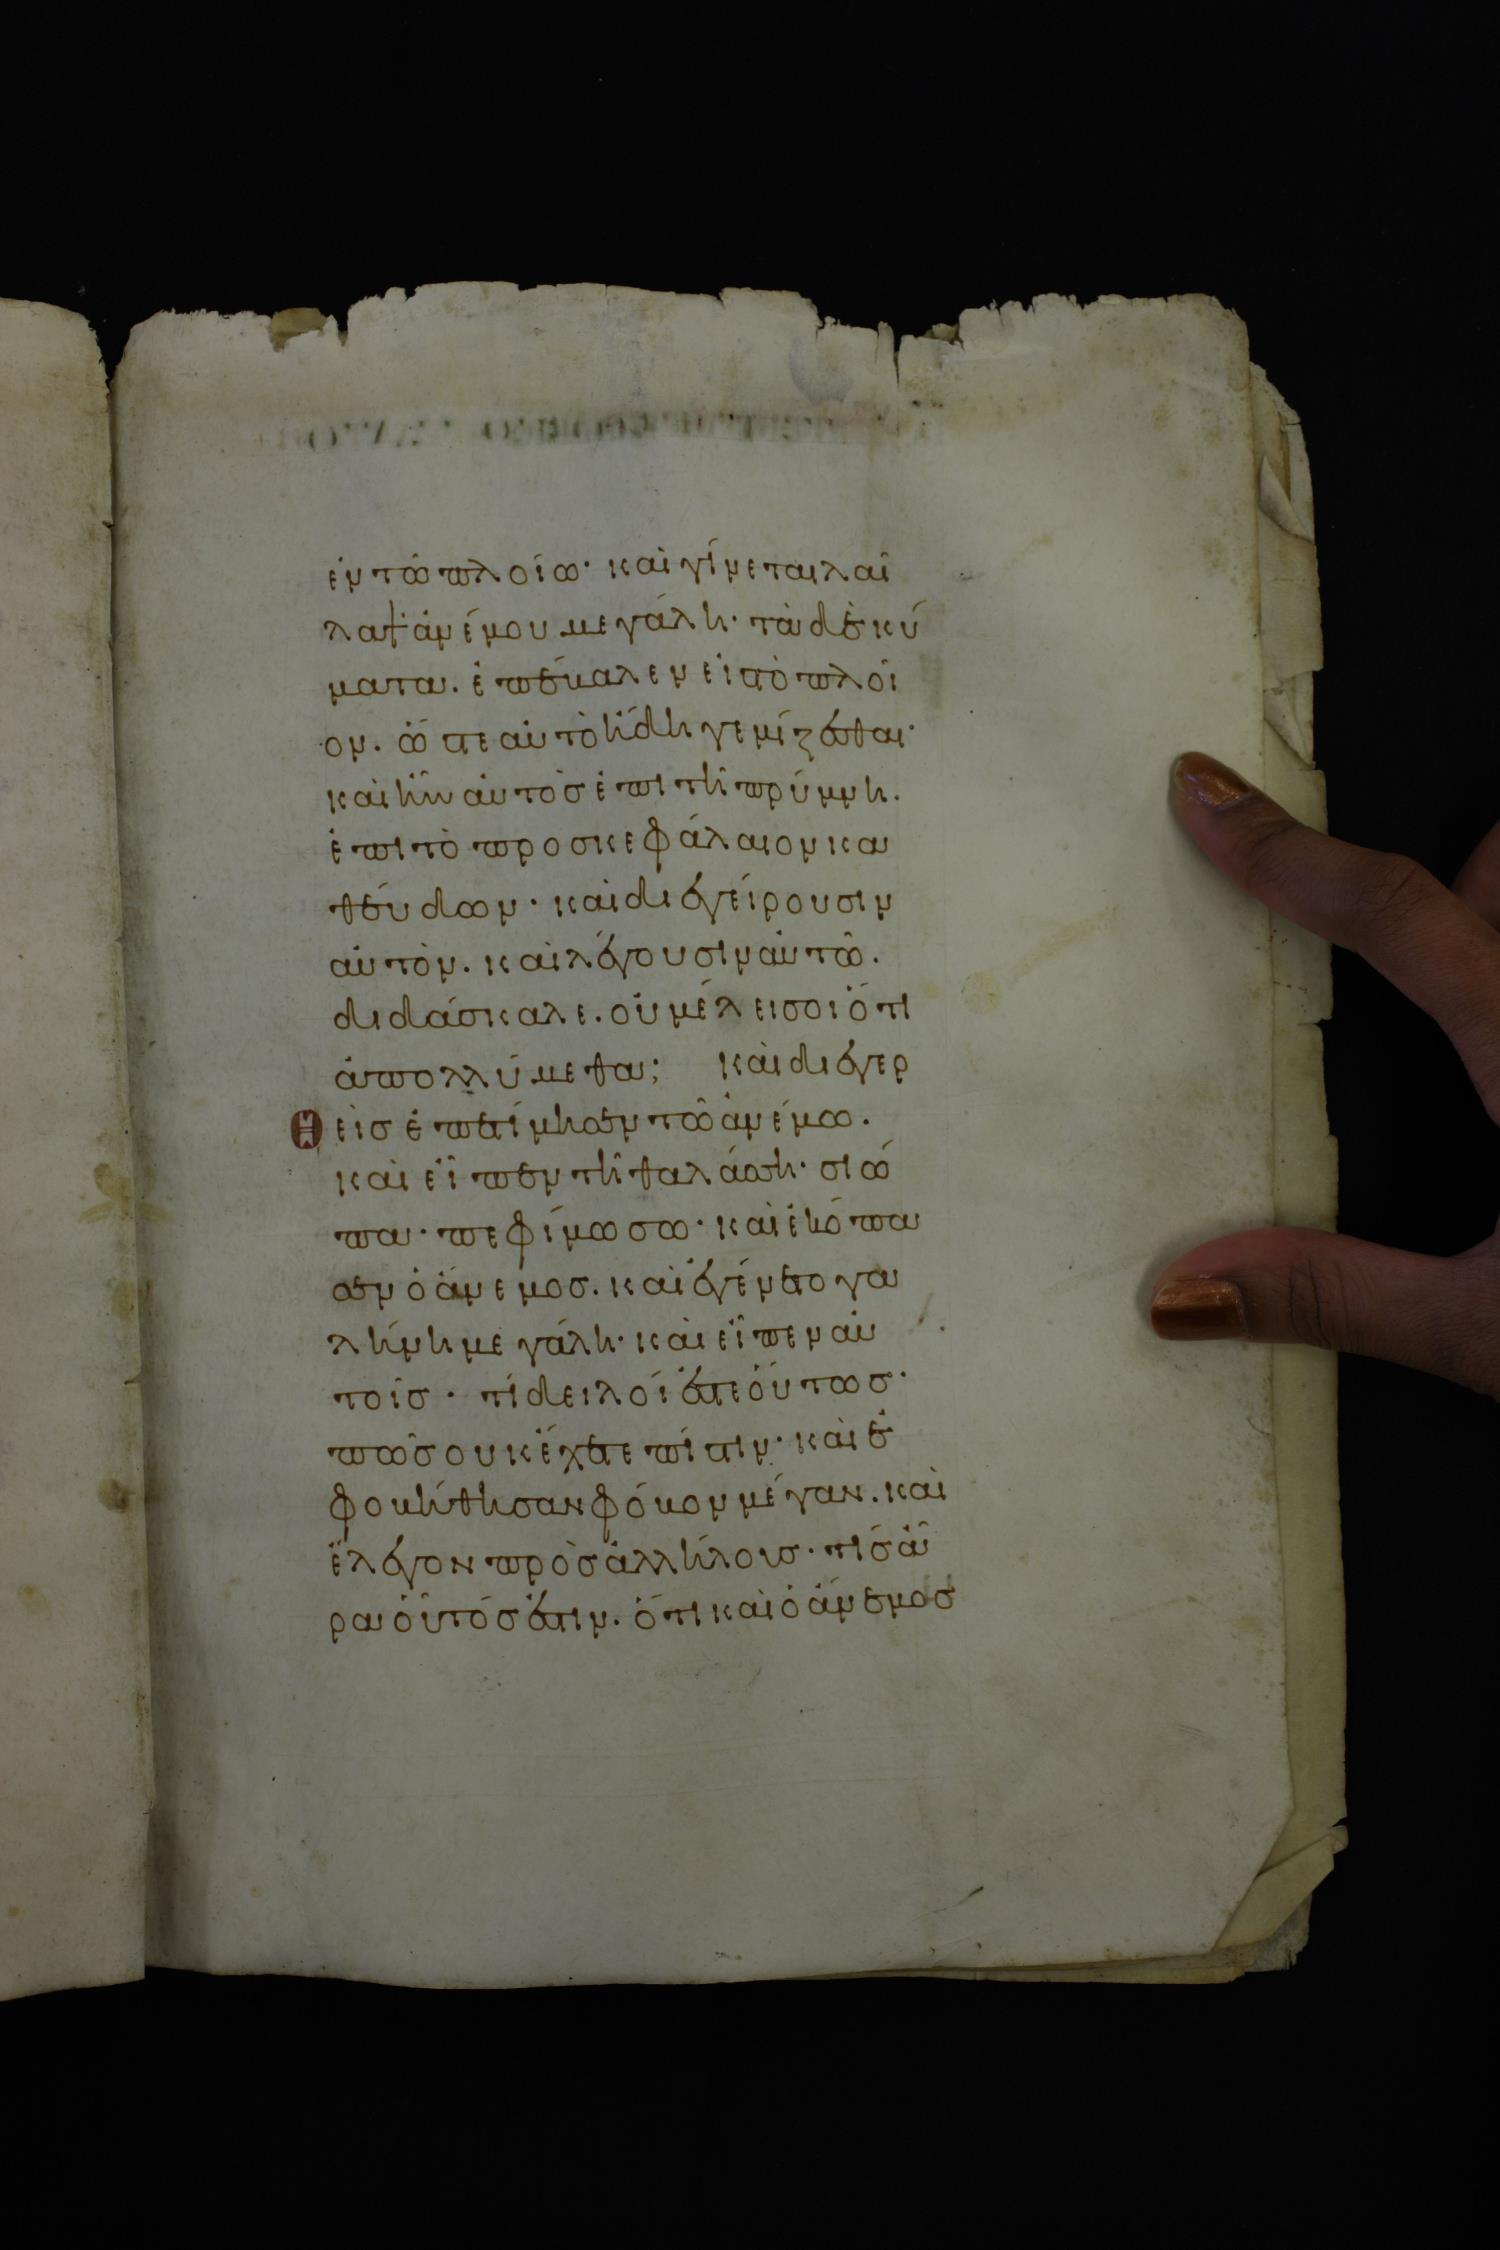 ἐν τῶ πλοίω· καὶ γίνεται λαῖ
λαψ ἀνέμου μεγάλη· τὰ δὲ κύ
ματα. ἐπέβαλεν εἰς τὸ πλοῖ
ον. ὥστε αὐτὸ ἤδη γεμίζεσθαι·
καὶ ἦν αὐτὸσ ἐπι τῆ πρύμνη.
ἐπι τὸ προσκεφάλαιον κα
θεύδων· καὶ διεγείρουσιν
αὐτὸν. καὶ λέγουσιν αὐτῶ.
διδάσκαλε. οὐ μέλει σοι ὅτι
ἀπολλύμεθα; καὶ διεγερ
θεὶσ ἐπετίμησεν τῶ ἀνέμω.
καὶ εἶπεν τῆ θαλάσση· σιώ
πα· πεφίμωσω· καὶ ἐκόπα
σεν ὁ ἄνεμοσ. καὶ ἐγένετο γα
λήνη μεγάλη· καὶ εἶπεν αὐ
τοῖσ· τί δειλοί ἐστε οὕτωσ·
πῶσ ουκ ἔχετε πίστιν· καὶ ἐ
φοβήθησαν φόβον μέγαν. καὶ
ἔλεγον πρὸσ ἀλλήλουσ· τίσ ἄ
ρα οὗτόσ ἐστιν. ὅτι καὶ ὁ ἄνεμοσ